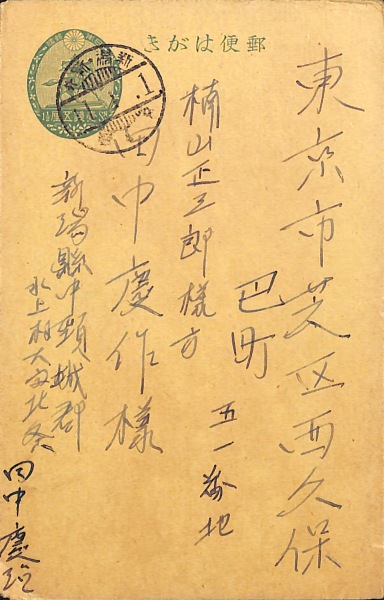 郵便はがき
東京市芝区西久保
巴町
五一番地
楠山正三郎様方
田中慶作様
新潟縣中頸城郡
水上村大字北条
田中慶治